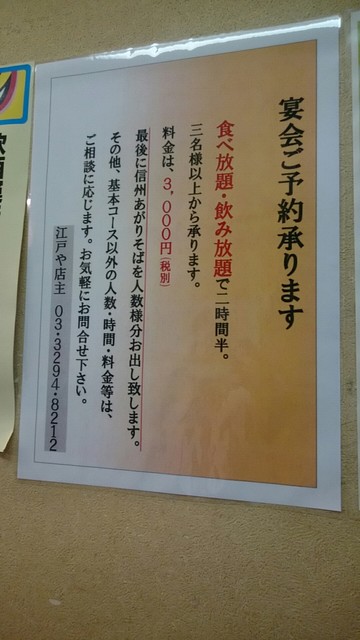 宴会ご予約承ります
食べ放題・飲み放題で二時間半。
三名様以上から承ります。
料金は、3,000円(税別)
最後に信州あがりそばを人数様分お出し致します。
その他、基本コース以外の人数・時間・料金等は、
ご相談に応じます。お気軽にお問合せ下さい。
江戸や店主 03・3294・8212